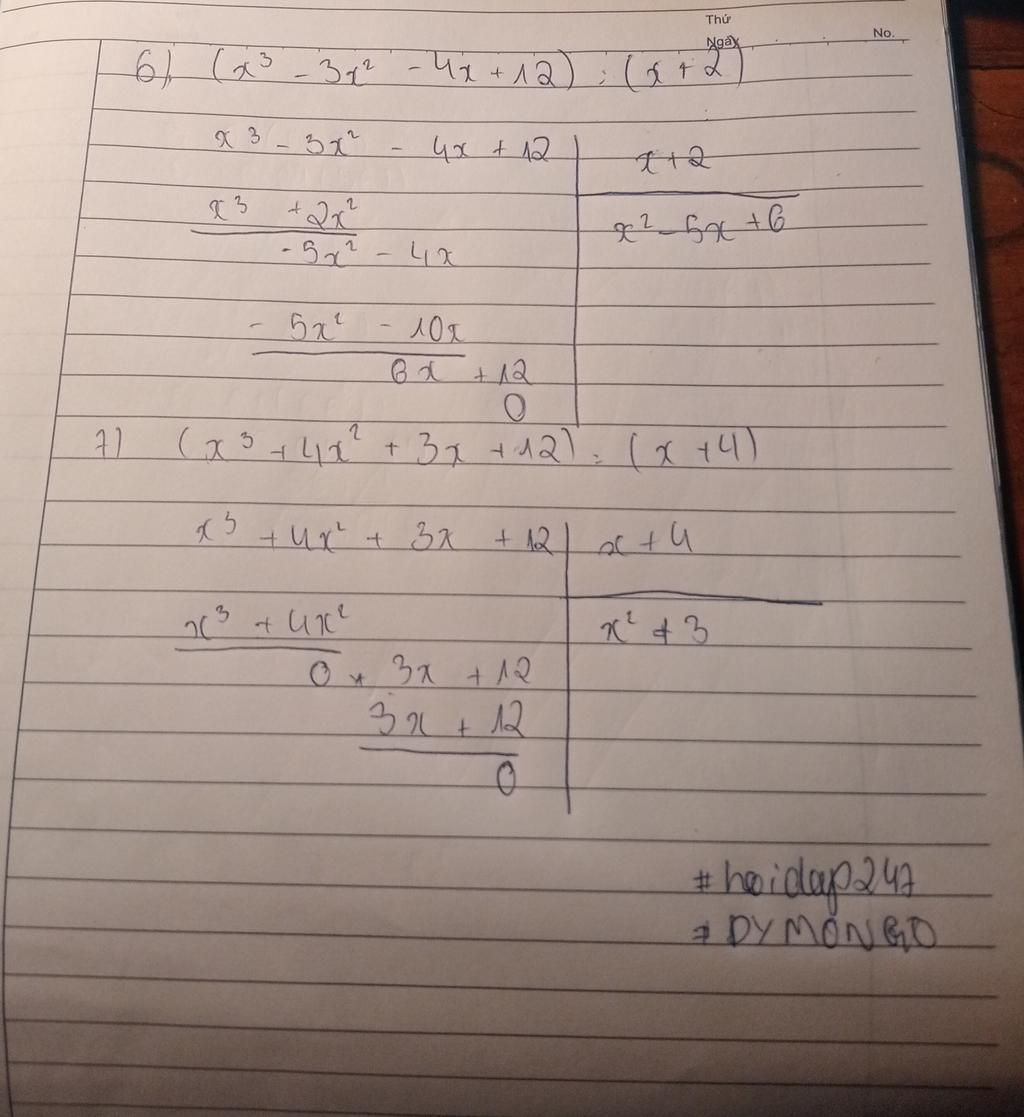 Thứ
Ngày
No.
6) (x³ - 3x² - 4x + 12) : (x + 2)
x³ - 3x² - 4x + 12 | x + 2
x³ + 2x² | x² - 5x + 6
- 5x² - 4x
- 5x² - 10x
6x + 12
0
7) (x³ + 4x² + 3x + 12) : (x + 4)
x³ + 4x² + 3x + 12 | x + 4
x³ + 4x² | x² + 3
0 + 3x + 12
3x + 12
0
#hoidap247
#DYMONGO